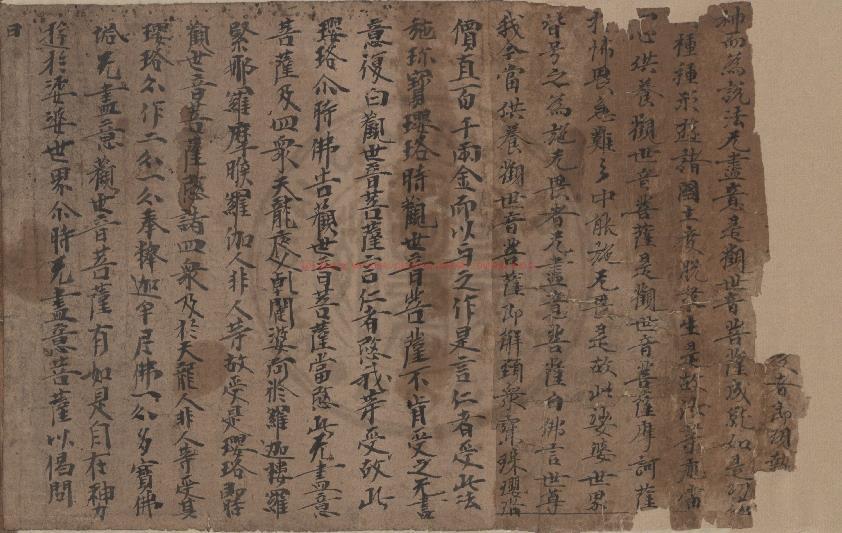 神而為說法无盡意是觀世音菩薩成就如是功
種種形遊諸國土度脫眾生是故汝等應當
一心供養觀世音菩薩是觀世音菩薩摩訶薩
怖畏急難之中能施无畏是故此娑婆世界
皆号之為施无畏者无盡意菩薩白佛言世尊
我今當供養觀世音菩薩即解頸衆寶珠瓔珞
價直百千兩金而以与之作是言仁者受此法
施珎寶瓔珞時觀世音菩薩不肯受之无盡
意復白觀世音菩薩言仁者愍我等受故此
瓔珞尒時佛告觀世音菩薩當愍此无盡意
菩薩及四衆天龍夜叉乹闥婆阿脩羅迦樓羅
緊那羅摩睺羅伽人非人等故受是瓔珞即時
觀世音菩薩愍諸四衆及於天龍人非人等受其
瓔珞分作二分一分奉釋迦牟尼佛一分多寶佛
塔无盡意觀世音菩薩有如是自在神力
遊於娑婆世界尒時无盡意菩薩以偈問
曰